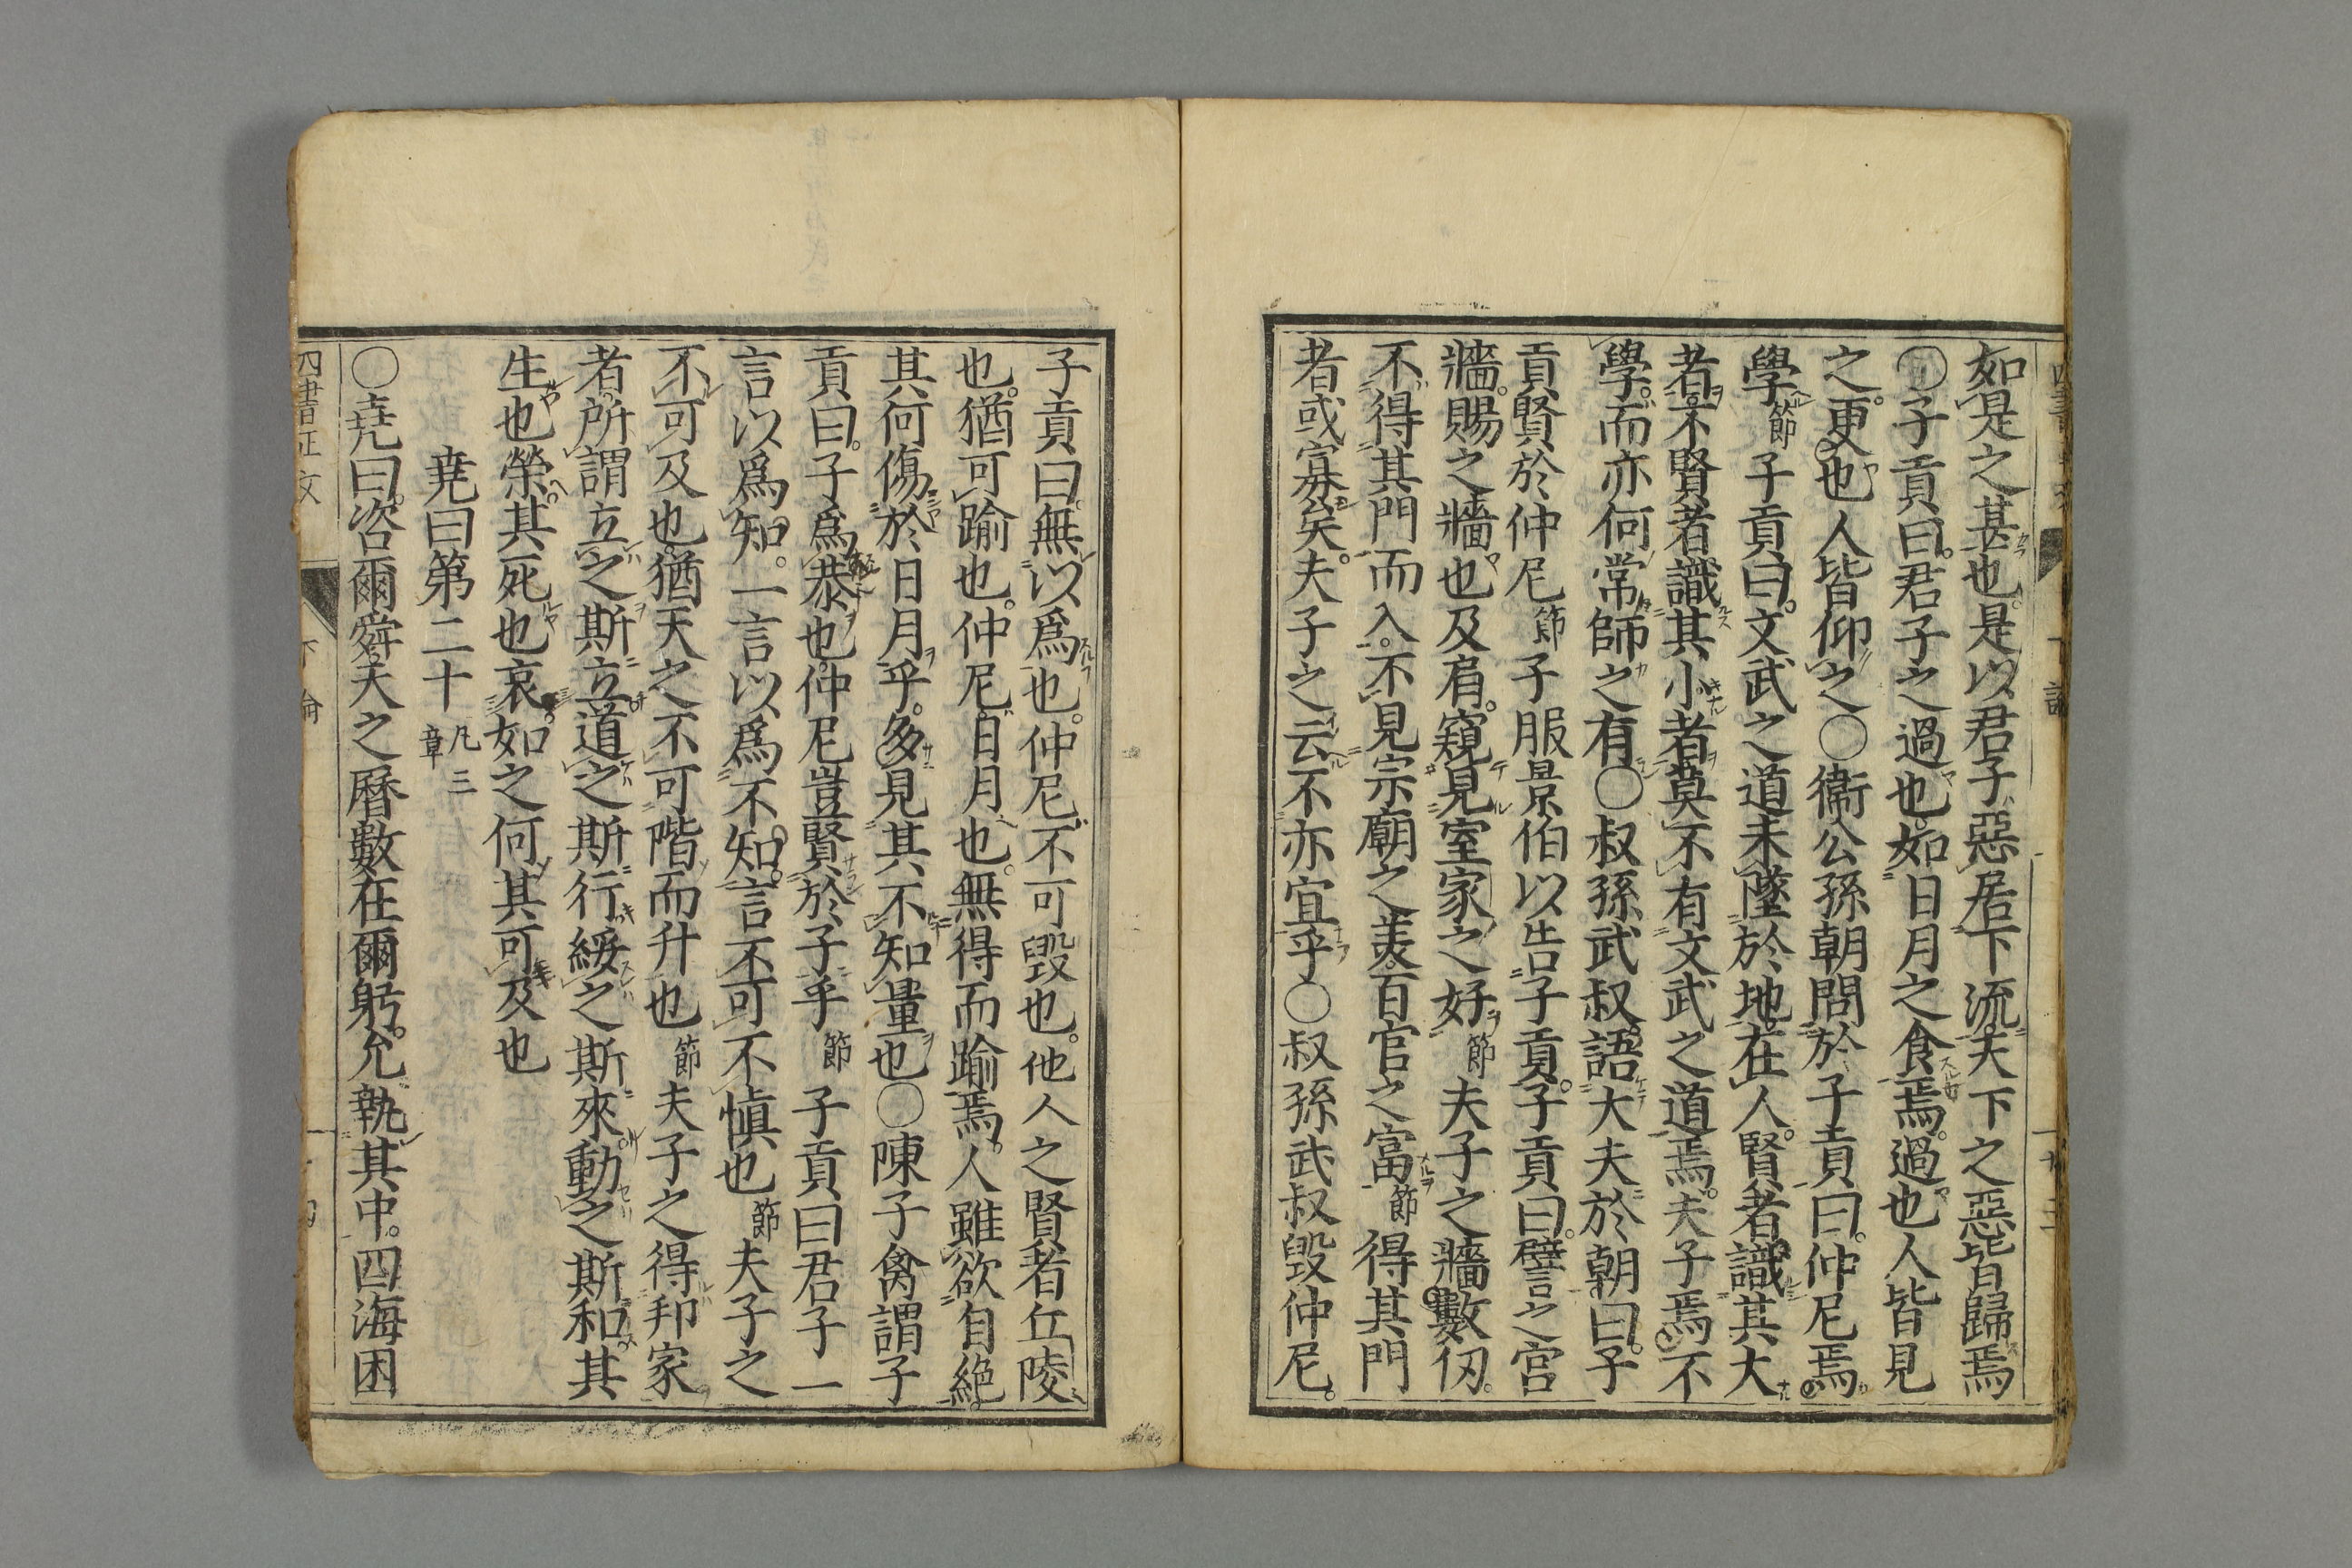 如是之甚也。是以君子惡居下流。天下之惡皆歸焉
〇子貢曰。君子之過也。如日月之食焉。過也人皆見
之。更也人皆仰之〇衞公孫朝問於子貢曰。仲尼焉
學節子貢曰。文武之道未墜於地。在人。賢者識其大
者。不賢者識其小者。莫不有文武之道焉。夫子焉不
學。而亦何常師之有〇叔孫武叔語大夫於朝曰。子
貢賢於仲尼節子服景伯以告子貢。子貢曰。譬之宮
牆。賜之牆也及肩。窺見室家之好節夫子之牆數仞。
不得其門而入。不見宗廟之美。百官之富節得其門
者或寡矣。夫子之云不亦宜乎〇叔孫武叔毀仲尼。
子貢曰。無以爲也。仲尼不可毀也。他人之賢者丘陵
也。猶可踰也。仲尼日月也。無得而踰焉。人雖欲自絶。
其何傷於日月乎。多見其不知量也〇陳子禽謂子
貢曰。子爲恭也。仲尼豈賢於子乎節子貢曰君子一
言以爲知。一言以爲不知。言不可不愼也節夫子之
不可及也。猶天之不可階而升也節夫子之得邦家
者。所謂立之斯立。道之斯行。綏之斯來。動之斯和。其
生也榮。其死也哀。如之何其可及也
堯曰第二十 凡三章
〇堯曰。咨爾舜。天之曆數在爾躬。允執其中。四海困
四書正文 下論